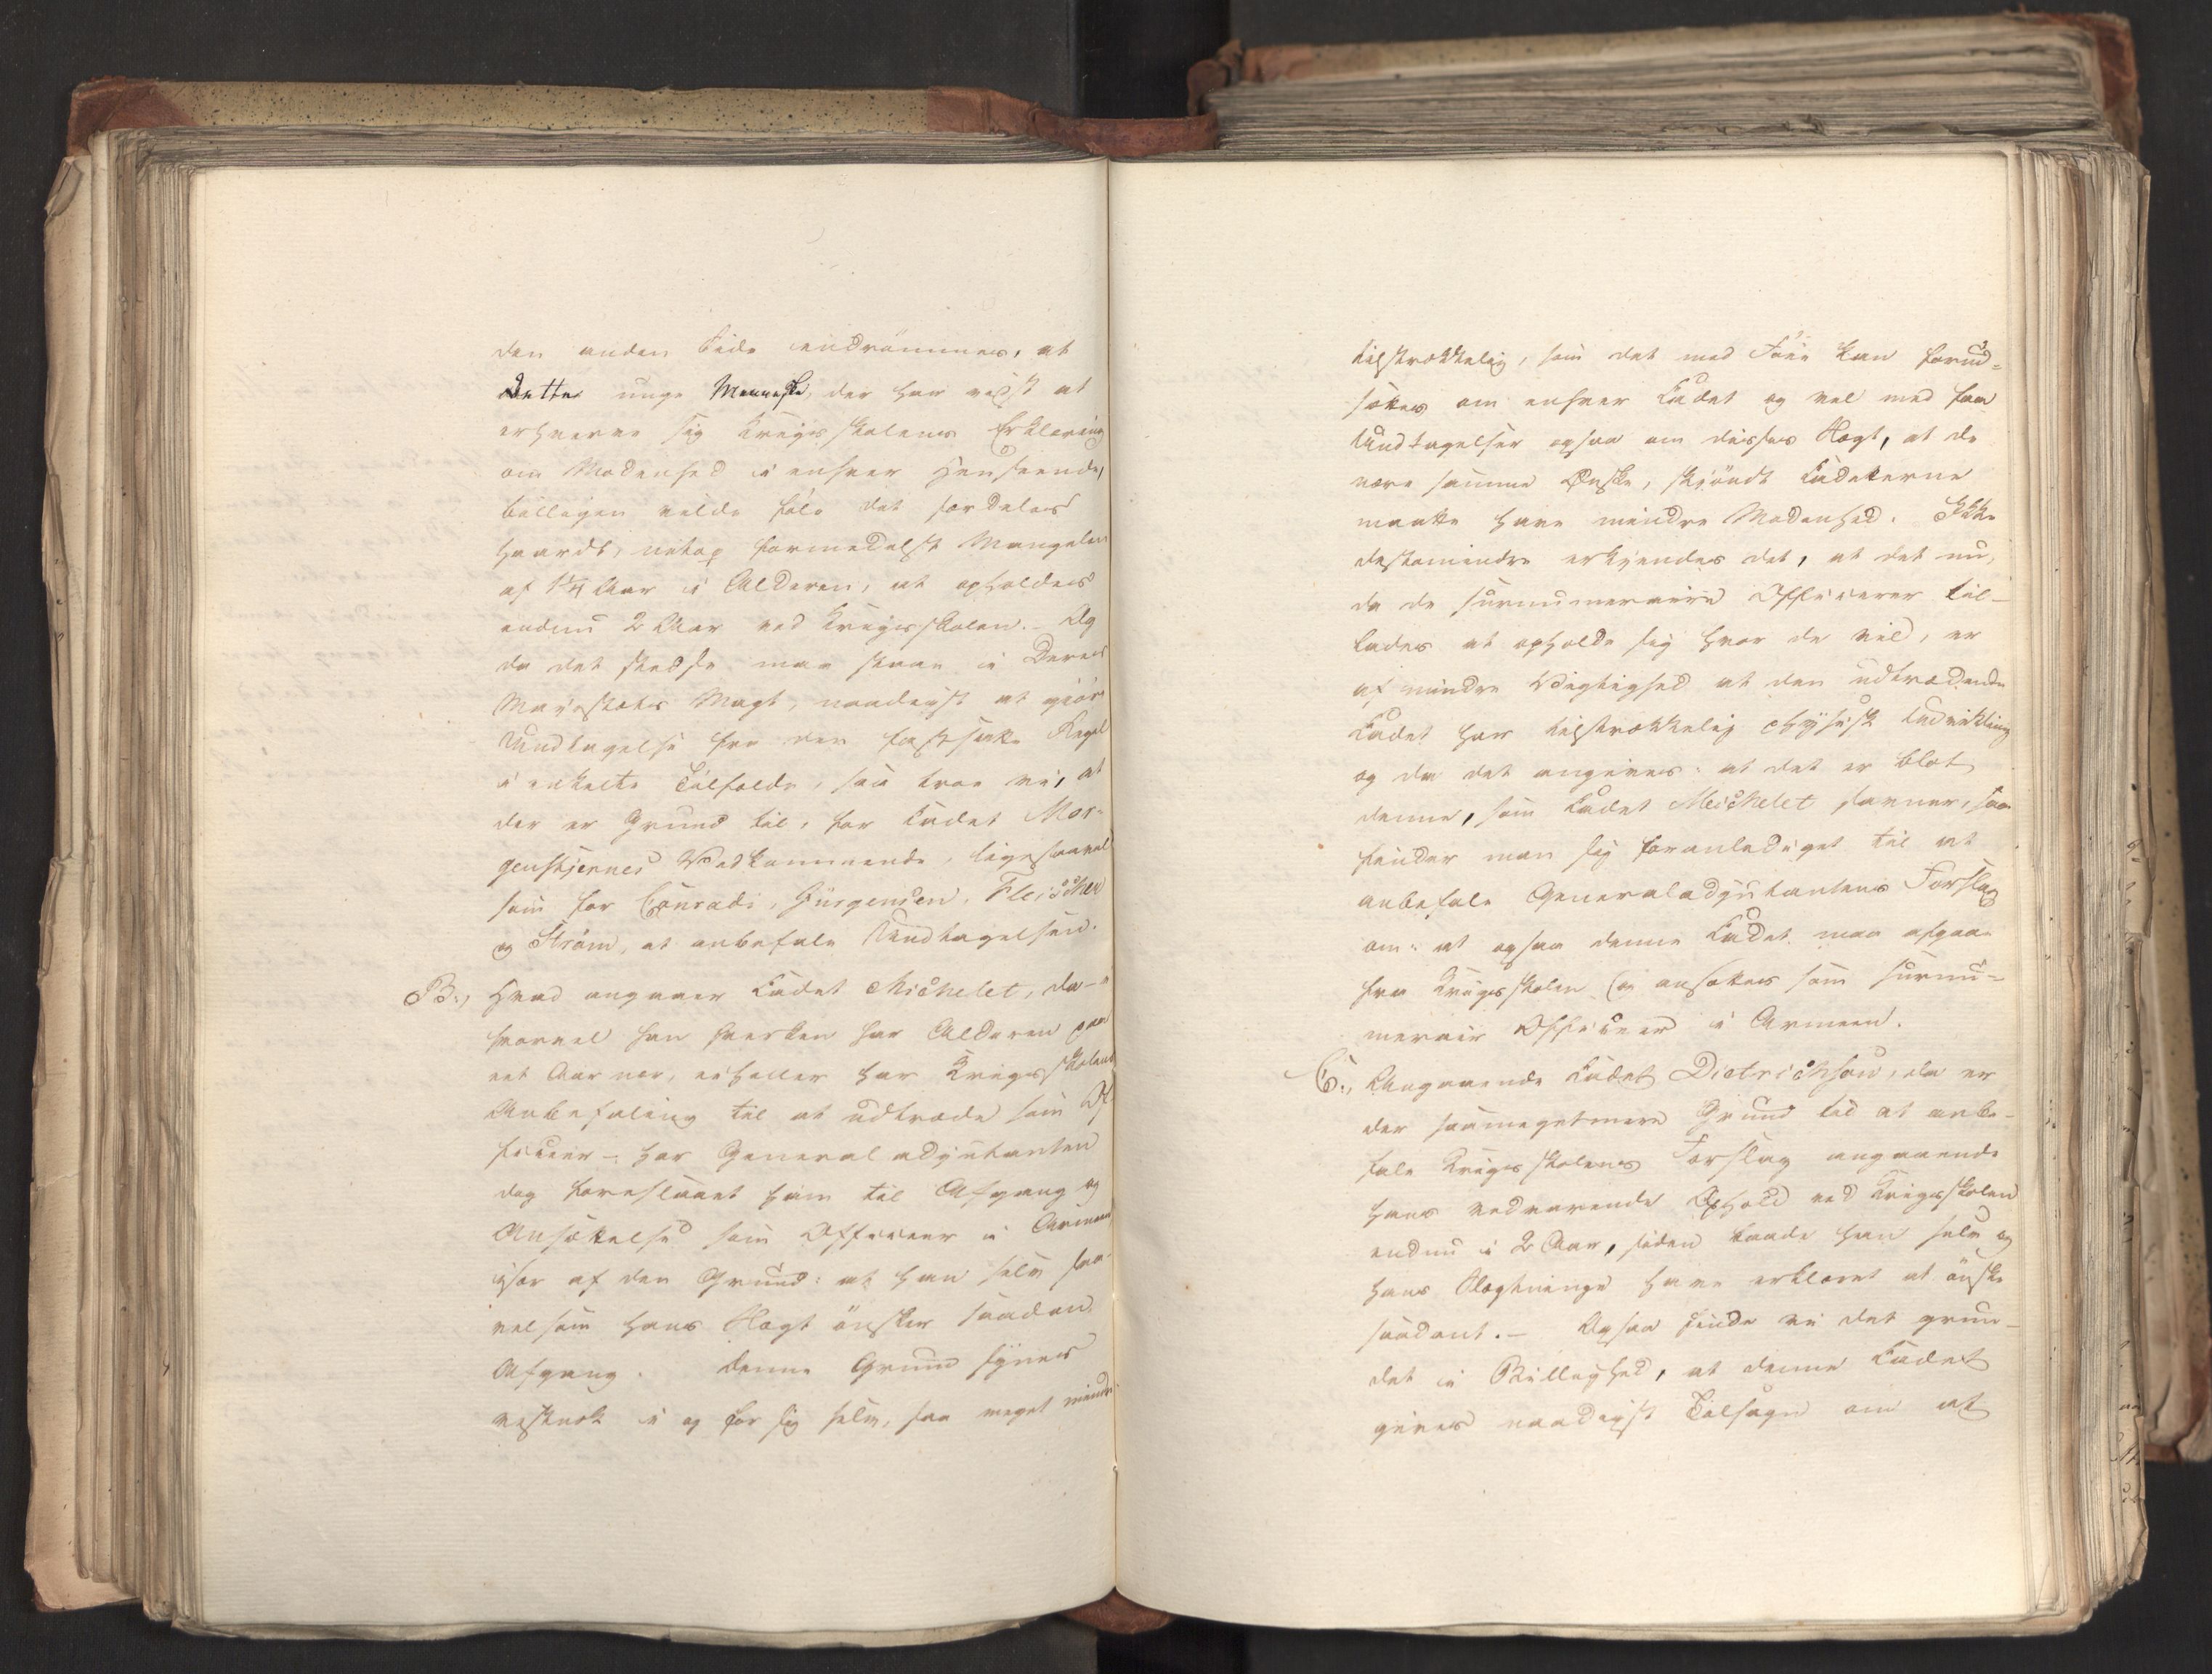 den anden Side indrømmes, at
dette unge Menneske, der har vidst at
erhverve sig Krigsskolens Erklæring
om Modenhed i enhver Henseende,
billigen vilde føle det særdeles
haardt, netop formedelst Mangelen
af 1/4 Aar i Alderen, at opholdes
endnu 2 Aar ved Krigsskolen. – Og
da det stedse maa staae i Deres
Majestæts Magt, naadigst at giøre
Undtagelse fra den fastsatte Regel
i enkelte Tilfælde, saa troe vi, at
der er Grund til, for Cadet Mor-
genstjernes Vedkommende, ligesaavel
som for Conradi, Jürgensen, Fleischer
og Strøm, at anbefale Undtagelsen.
B., Hvad angaaer Cadet Michelet, da –
hvorvel han hverken har Alderen paa
eet Aar nær, ei heller har Krigsskolens
Anbefaling til at udtræde som Of-
ficeer – har Generaladjutanten
dog foreslaaet ham til Afgang og
Ansættelse som Officeer i Armeen
især af den Grund: at han selv saa-
vel som hans Slægt önsker saadan
Afgang. Denne Grund synes
vistnok i og for sig selv, saa meget mindre
tilstrækkelig, som det med Føie kan forud-
sættes om enhver Cadet og vel med faa
Undtagelser ogsaa om disses Slægt, at de
nære samme Ønske, skjöndt Cadetterne
maatte have mindre Modenhed. Ikke
destomindre erkjendes det, at det nu,
da de surnumeraire Officerer til-
lades at opholde sig hvor de vil, er
af mindre Vigtighed at den udtrædende
Cadet har tilstrækkelig physisk Udvikling
og da det angives: at det er blot
denne, som Cadet Michelet savner, saa
finder man sig foranlediget til at
anbefale Generaladjutantens Forslag
om: at ogsaa denne Cadet maa afgaae
fra Krigsskolen og ansættes som surnu-
merair Officeer i Armeen.
C., Angaaende Cadet Dietrichson, da er
der saameget mere Grund til at anbe-
fale Krigsskolens Forslag angaaende
hans vedvarende Ophold ved Krigsskolen
endnu i 2 Aar, siden baade han selv og
hans Slægtninge have erklæret at önske
saadant. – Ogsaa finde vi det grun-
det i Billighed, at denne Cadet
gives naadigst Tilsagn om at